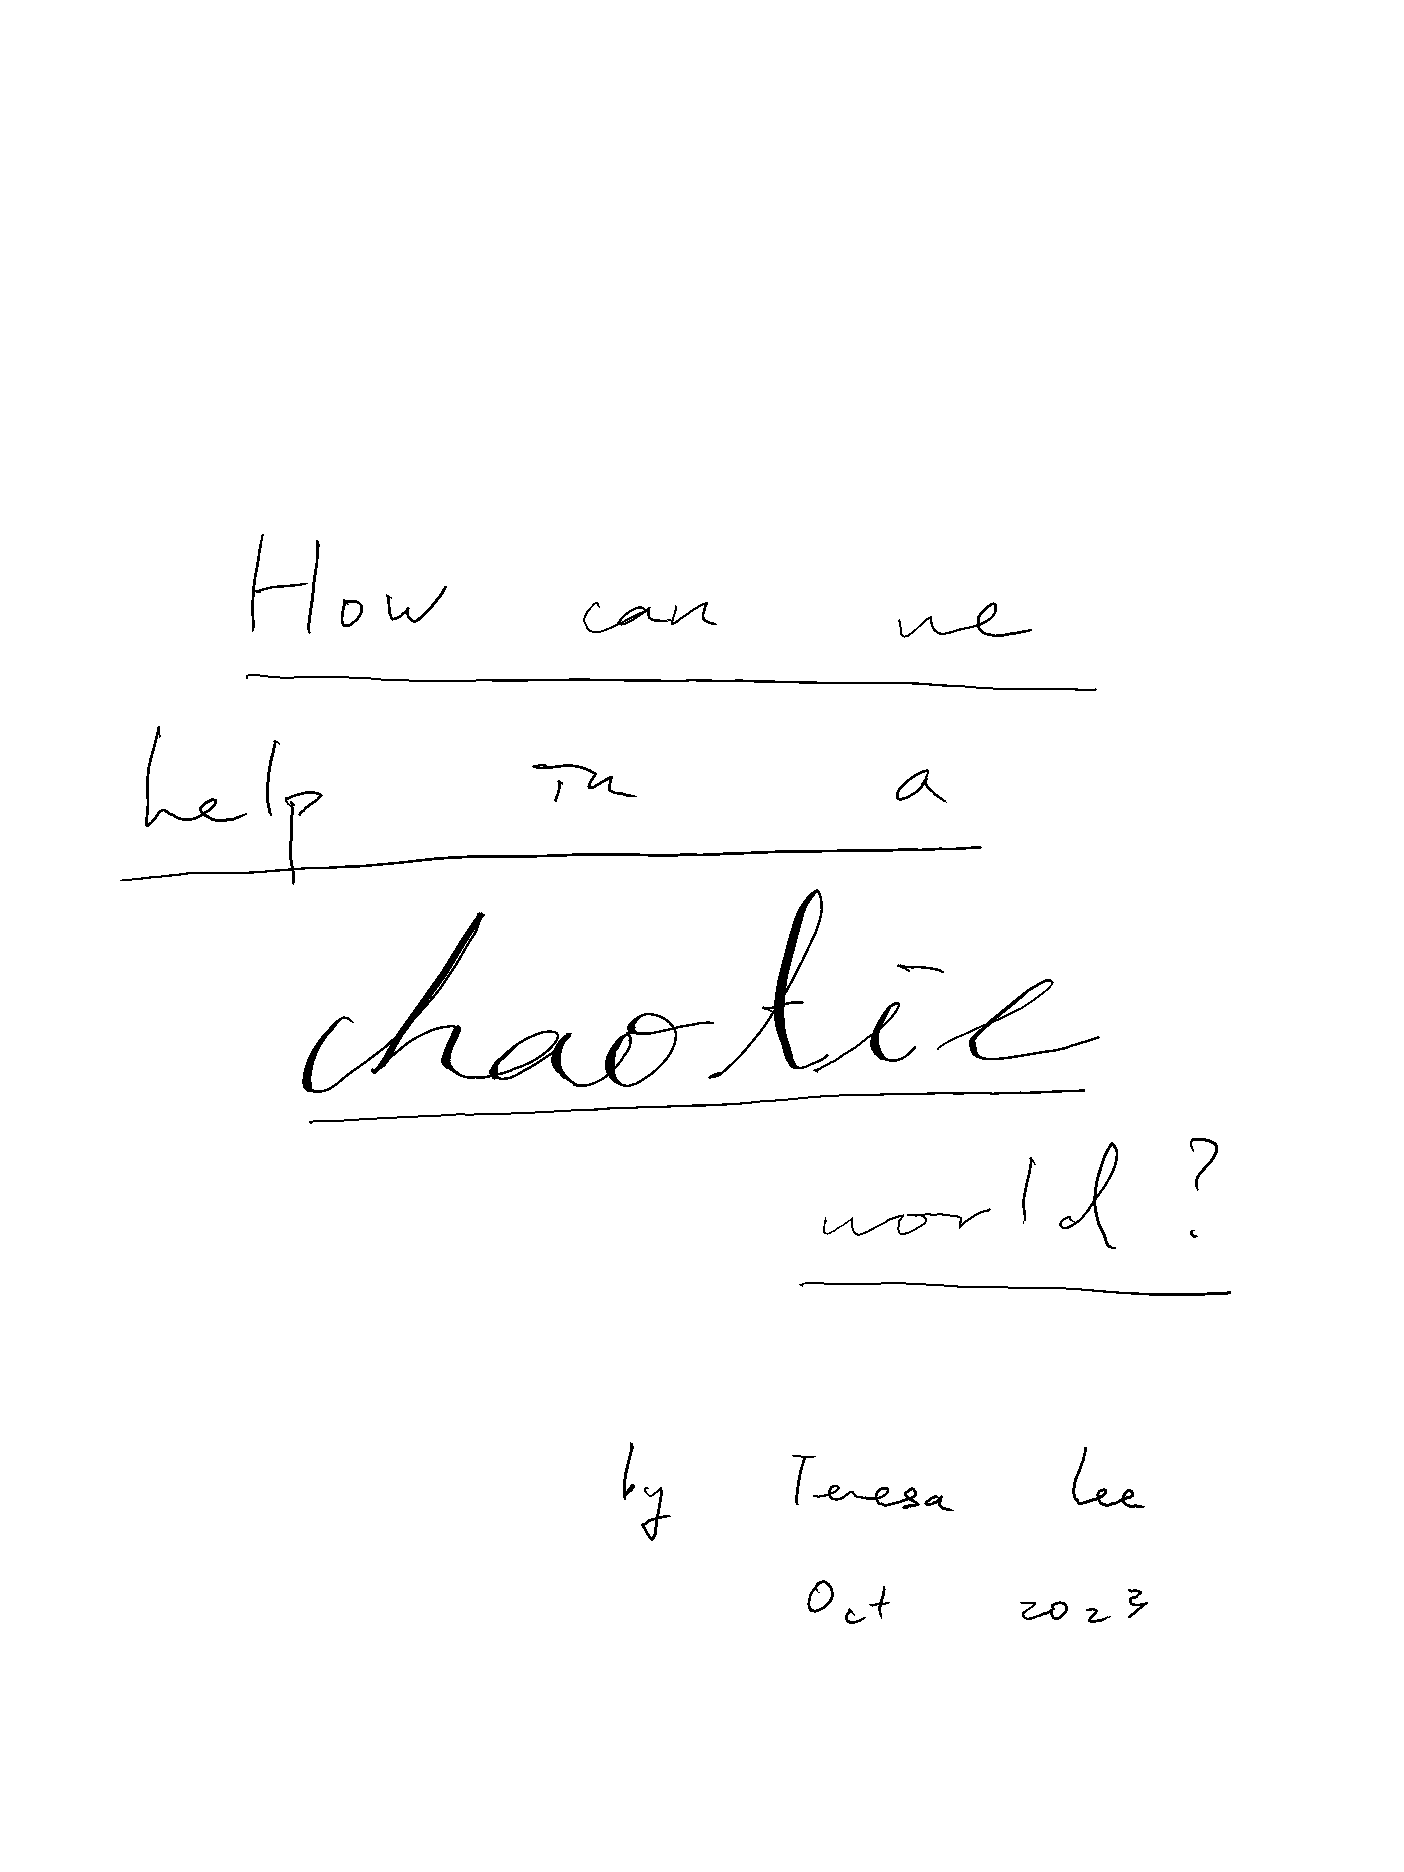 How can we
help in a
chaotic
world?
by Teresa Lee
Oct 2023